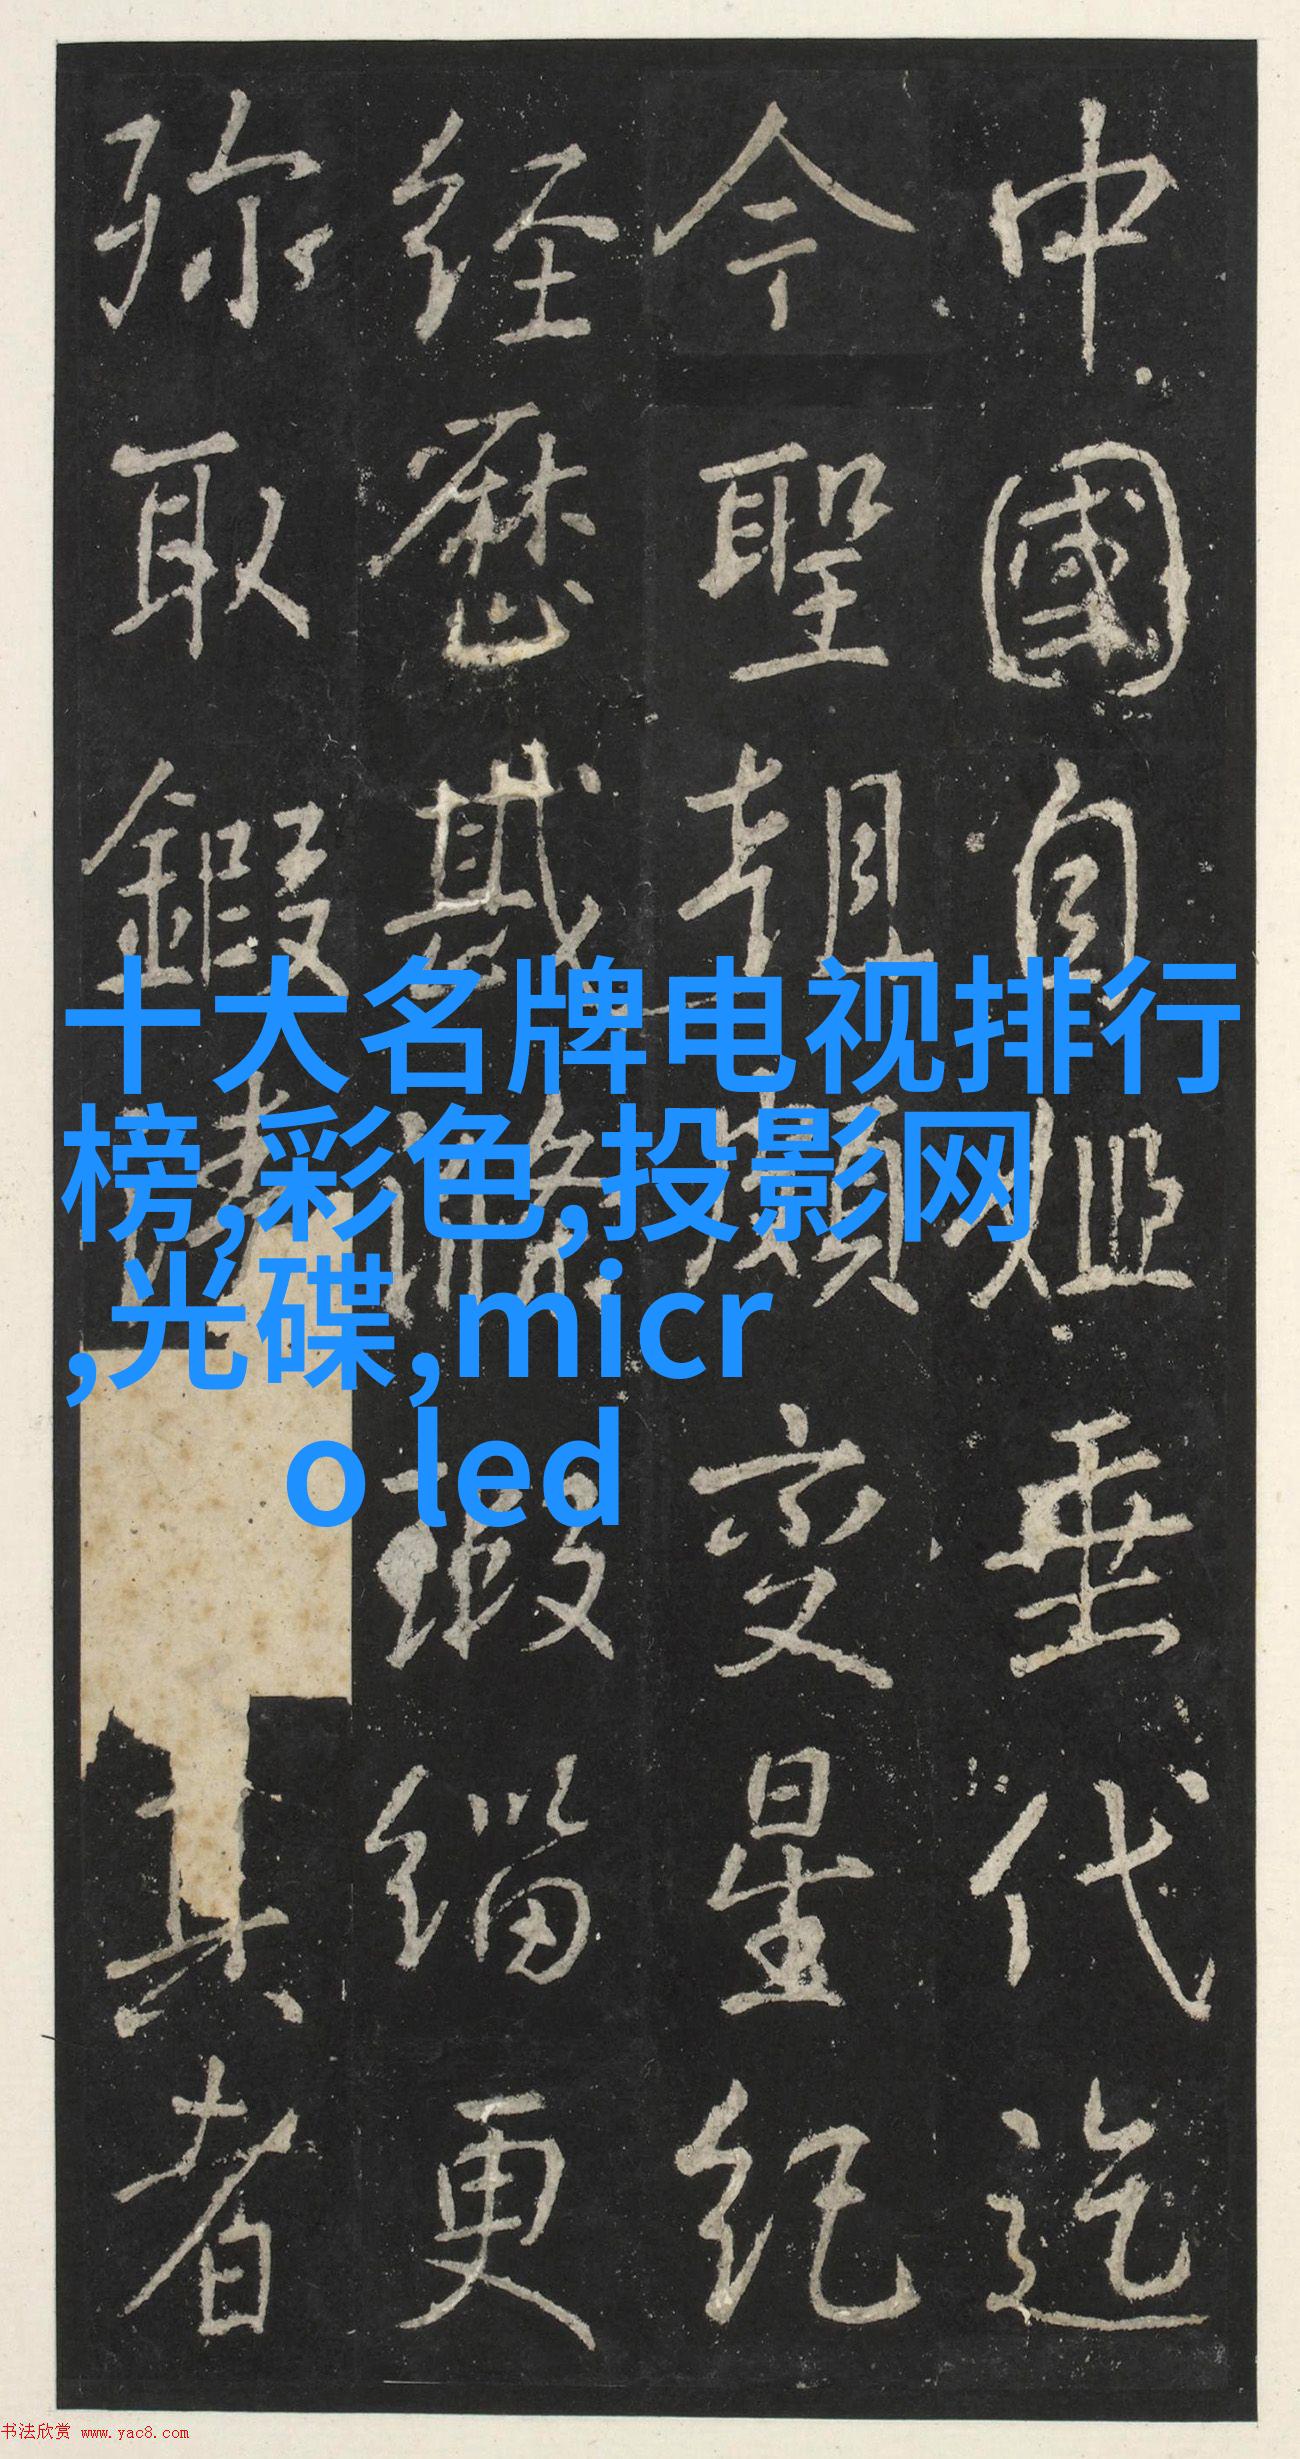 十大名牌电视排行
榜,彩色,投影网
,光碟,micr
o led
中國自垂代迄
今聖朝变星紀
经歷瑕緇更
弥取鍜真者
书法欣赏 www.yac8.com